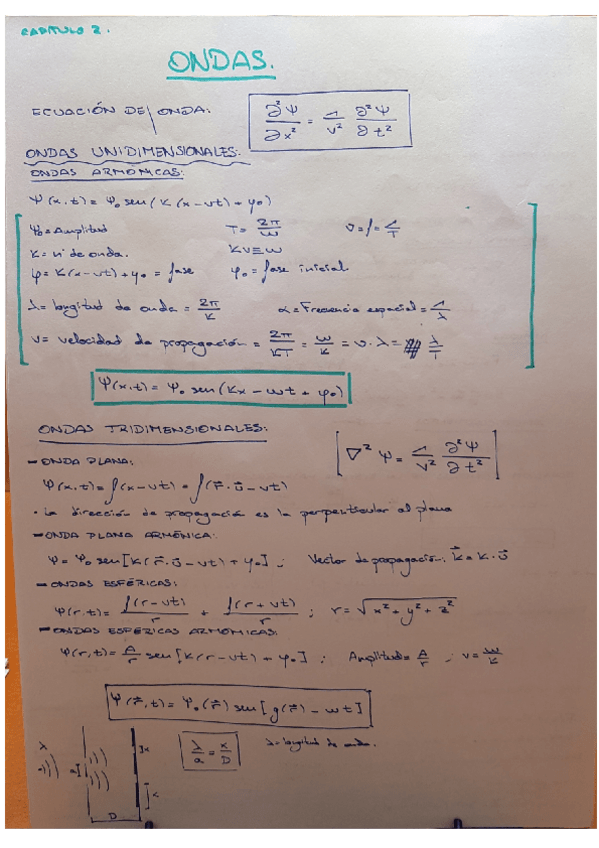 CAPÍTULO 2.
ONDAS.
ECUACIÓN DE ONDA: ∂²Ψ/∂x² = 1/v² ∂²Ψ/∂t²
ONDAS UNIDIMENSIONALES:
ONDAS ARMÓNICAS:
Ψ(x,t) = Ψ₀ sen(k(x-vt)+φ₀)
Ψ₀ = Amplitud T = 2π/ω ν = f = 1/T
k = nº de onda. kv = ω
φ = k(x-vt)+φ₀ = fase φ₀ = fase inicial
λ = longitud de onda = 2π/k α = Frecuencia espacial = 1/λ
v = velocidad de propagación = 2π/kT = ω/k = ν·λ = λ/T
Ψ(x,t) = Ψ₀ sen(kx - ωt + φ₀)
ONDAS TRIDIMENSIONALES:
[∇²Ψ = 1/v² ∂²Ψ/∂t²]
- ONDA PLANA:
Ψ(x,t) = f(x-vt) = f(r⃗·u⃗ - vt)
· La dirección de propagación es la perpenticular al plano
- ONDA PLANA ARMÓNICA:
Ψ = Ψ₀ sen[k(r⃗·u⃗ - vt) + φ₀] ; Vector de propagación: k⃗ = k·u⃗
- ONDAS ESFÉRICAS:
Ψ(r,t) = f(r-vt)/r + f(r+vt)/r ; r = √(x²+y²+z²)
- ONDAS ESFÉRICAS ARMÓNICAS:
Ψ(r,t) = A/r sen[k(r-vt)+φ₀] ; Amplitud = A/r ; v = ω/k
Ψ(r⃗,t) = Ψ₀(r⃗) sen[g(r⃗) - ωt]
λ a x
λ/a = x/D λ = longitud de onda.
D